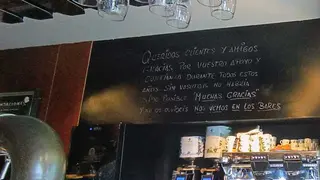 QUERIDOS CLIENTES Y AMIGOS
GRACIAS POR VUESTRO APOYO Y
CONFIANZA DURANTE TODOS ESTOS
AÑOS SIN VOSOTROS NO HABRÍA
SIDO POSIBLE "MUCHAS GRACIAS"
NOS VEMOS EN LOS BARES